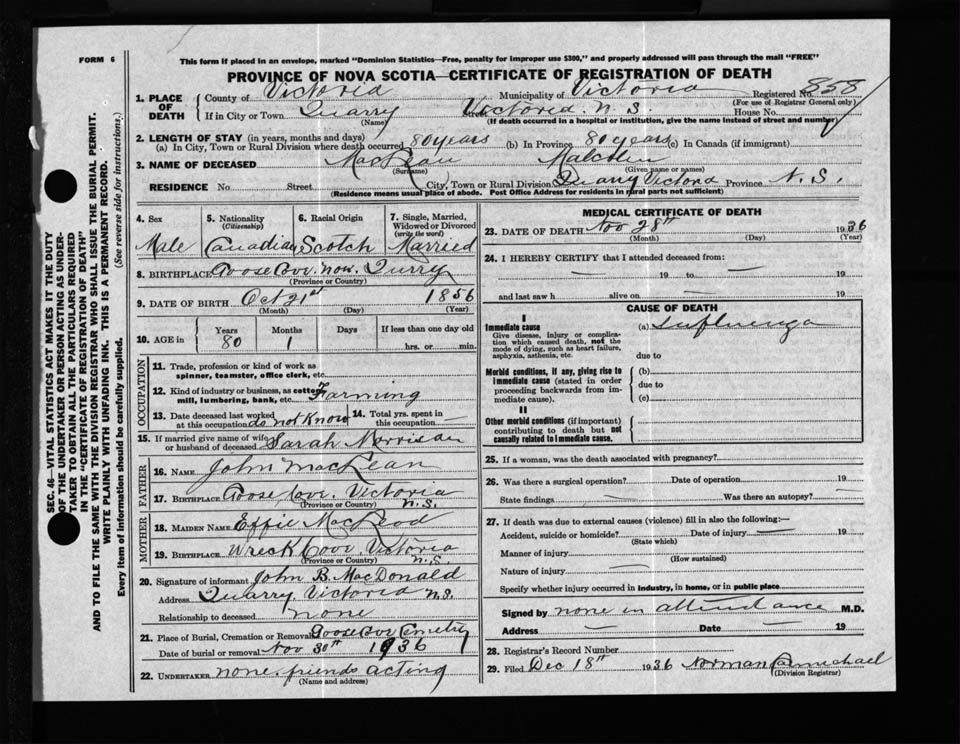 FORM 6
This form if placed in an envelope, marked "Dominion Statistics—Free, penalty for improper use $300," and properly addressed will pass through the mail "FREE"
PROVINCE OF NOVA SCOTIA—CERTIFICATE OF REGISTRATION OF DEATH
1. PLACE OF DEATH County of Victoria Municipality of Victoria Registered No. 858
(For use of Registrar General only)
If in City or Town Quarry Victoria N.S. House No.
(Name) (If death occurred in a hospital or institution, give the name instead of street and number)
2. LENGTH OF STAY (in years, months and days)
(a) In City, Town or Rural Division where death occurred 80 years (b) In Province 80 years (c) In Canada (if immigrant)
3. NAME OF DECEASED MacLean Malcolm
(Surname) (Given name or names)
RESIDENCE No. Street City, Town or Rural Division Victoria Province N.S.
(Residence means usual place of abode. Post Office Address for residents in rural parts not sufficient)
4. Sex 5. Nationality (Citizenship) 6. Racial Origin 7. Single, Married, Widowed or Divorced (write the word)
Male Canadian Scotch Married
8. BIRTHPLACE Goose Cov. now.
(Province or Country)
9. DATE OF BIRTH Oct 21st 1856
(Month) (Day) (Year)
10. AGE in Years Months Days If less than one day old
80 1 hrs. or min.
OCCUPATION
11. Trade, profession or kind of work as spinner, teamster, office clerk, etc.
12. Kind of industry or business, as cotton mill, lumbering, bank, etc. Farming
13. Date deceased last worked at this occupation do not know 14. Total yrs. spent in this occupation
15. If married give name of wife or husband of deceased Sarah Morrison
FATHER
16. NAME John MacLean
17. BIRTHPLACE Goose Cov. Victoria N.S.
(Province or Country)
MOTHER
18. MAIDEN NAME Effie MacLeod
19. BIRTHPLACE Wreck Cov. Victoria N.S.
(Province or Country)
20. Signature of informant John B. MacDonald
Address Quarry Victoria N.S.
Relationship to deceased none
21. Place of Burial, Cremation or Removal Goose Cov Cemetry
Date of burial or removal Nov 30th 1936
22. UNDERTAKER none. friends acting
(Name and address)
MEDICAL CERTIFICATE OF DEATH
23. DATE OF DEATH Nov 28th 1936
(Month) (Day) (Year)
24. I HEREBY CERTIFY that I attended deceased from:
— 19 to — 19
and last saw h alive on — 19
CAUSE OF DEATH
I
Immediate cause (a) Influenza
Give disease, injury or complication which caused death, not the mode of dying, such as heart failure, asphyxia, asthenia, etc.
due to
Morbid conditions, if any, giving rise to immediate cause (stated in order proceeding backwards from immediate cause).
(b)
due to
(c)
II
Other morbid conditions (if important) contributing to death but not causally related to immediate cause.
25. If a woman, was the death associated with pregnancy?
26. Was there a surgical operation? Date of operation 19
State findings — Was there an autopsy? —
27. If death was due to external causes (violence) fill in also the following:—
Accident, suicide or homicide? Date of injury — 19
(State which)
Manner of injury
(How sustained)
Nature of injury —
Specify whether injury occurred in industry, in home, or in public place
Signed by none in attendance M.D.
Address — Date — 19
28. Registrar's Record Number
29. Filed Dec 18th 1936 Norman Carmichael
(Division Registrar)
SEC. 46—VITAL STATISTICS ACT MAKES IT THE DUTY
OF THE UNDERTAKER OR PERSON ACTING AS UNDER-
TAKER TO OBTAIN ALL THE PARTICULARS REQUIRED
IN THE "CERTIFICATE OF REGISTRATION OF DEATH"
AND TO FILE THE SAME WITH THE DIVISION REGISTRAR WHO SHALL ISSUE THE BURIAL PERMIT.
WRITE PLAINLY WITH UNFADING INK. THIS IS A PERMANENT RECORD.
Every item of information should be carefully supplied. (See reverse side for instructions.)